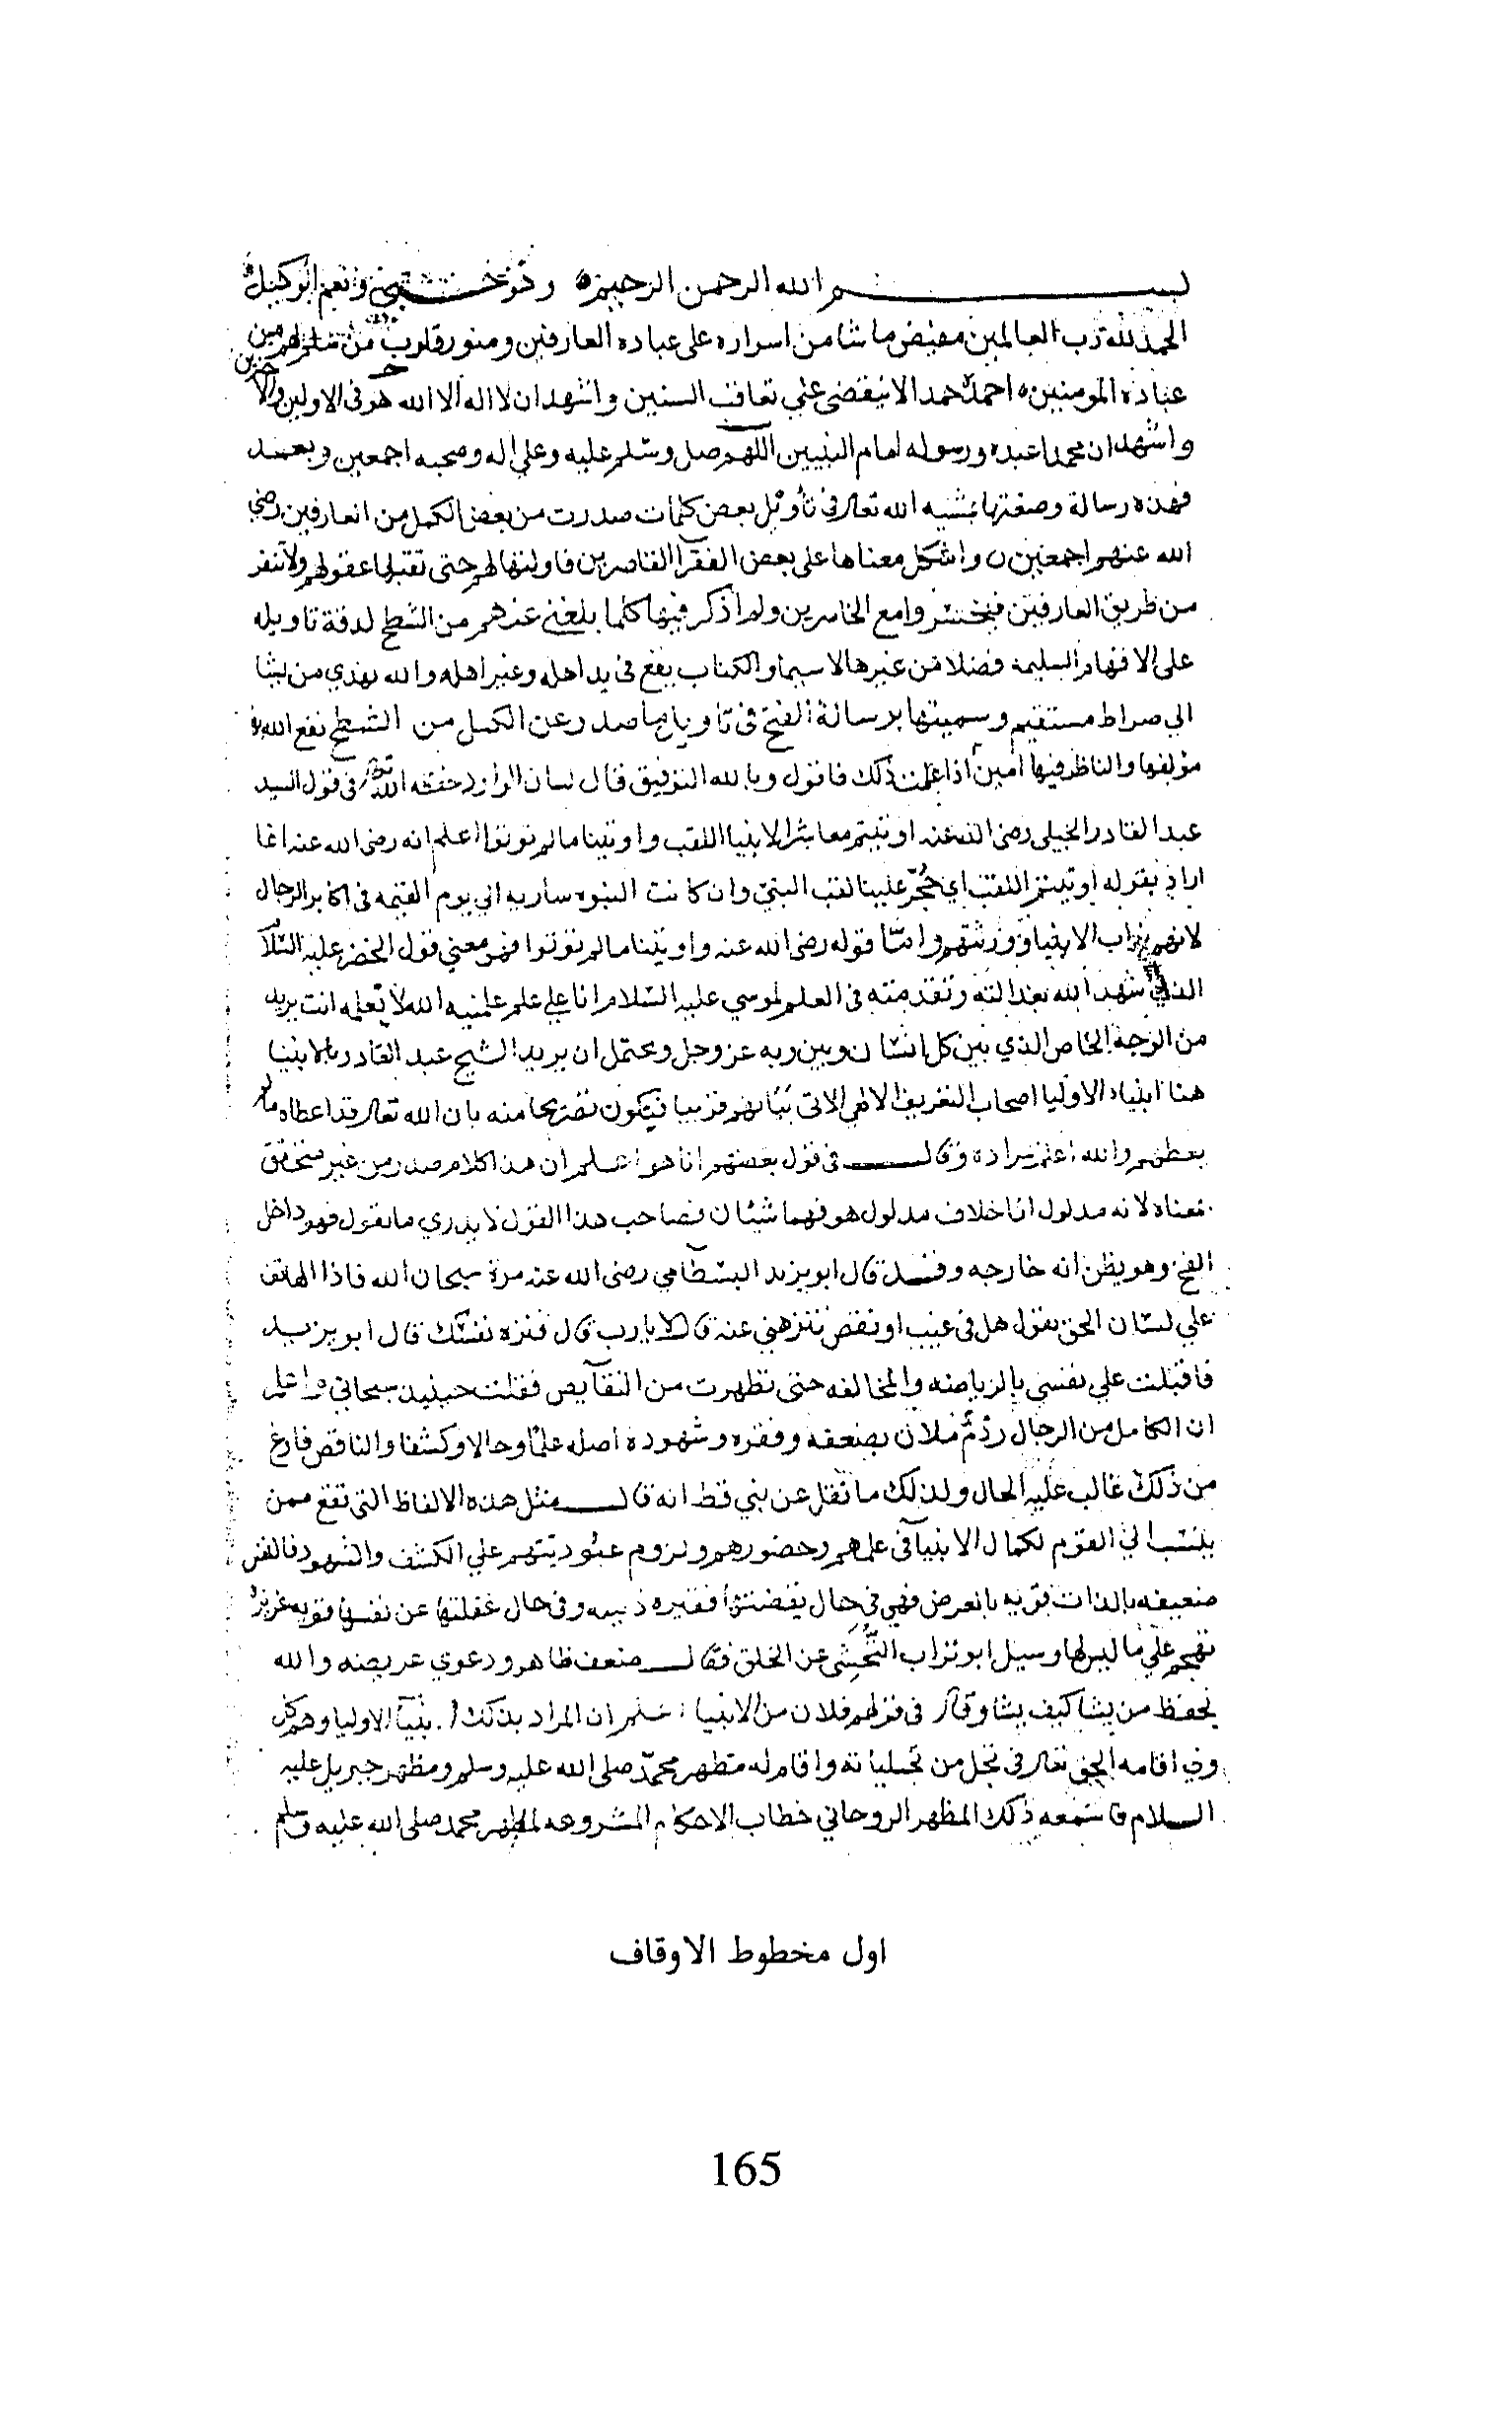 بسم الله الرحمن الرحيم وهو حسبي ونعم الوكيل
الحمد لله رب العالمين مفيض ما شا من اسراره على عباده العارفين ومنور قلوب من شا لهم من
عباده المومنين احمده حمدا لا ينقضي علي تعاقب السنين واشهد ان لا اله الا الله هو في الاولين والاخرين
واشهد ان محمدا عبده ورسوله امام النبيين اللهم صل وسلم عليه وعلي اله وصحبه اجمعين وبعد
فهذه رسالة وضعتها بمشيه الله تعالى في تأويل بعض كلمات صدرت من بعض الكمل من العارفين رضي
الله عنهم اجمعين واشكل معناها على بعض الفقرا القاصرين فاولتها لهم حتى تقبلها عقولهم ولا تنفر
من طريق العارفين فيخسروا مع الخاسرين ولم اذكر فيها كلما بلغني عنهم من الشطح لدقة تاويله
على الافهام السليمه فضلا عن غيرها لا سيما والكتاب يقع في يد اهله وغير اهله والله يهدي من يشا
الي صراط مستقيم وسميتها برسالة الفتح في تاويل ما صدر عن الكمل من الشطح نفع الله بها
مؤلفها والناظر فيها امين اذا علمت ذلك فاقول وبالله التوفيق قال لسان الوارد حفته الله في قول السيد
عبد القادر الجيلي رضي الله عنه اوتيتم معاشر الانبيا اللقب واوتينا ما لم توتوا اعلم انه رضي الله عنه انما
اراد بقوله اوتيتم اللقب اي حُجّر علينا لقب النبي وان كانت النبوه ساريه الي يوم القيمه في اكابر الرجال
لانهم نواب الانبيا وورثتهم وامّا قوله رضي الله عنه واوتينا ما لم توتوا فهو معني قول الخضر عليه السلام
الذي شهد الله بعدالته وتقدمته في العلم لموسي عليه السّلام انا علي علم علمنيه الله لا تعلمه انت يريد
من الوجه الخاص الذي بين كل انسان وبين ربه عز وجل ويحتمل ان يريد الشيخ عبد القادر بالانبيا
هنا انبياء الاوليا اصحاب التعريف الالهي الاتي بيانهم قريبا فيكون تصريحا منه بان الله تعالى قد اعطاه ما لم
يعطهم والله اعلم بمراده وقال في قول بعضهم انا هو اعلم ان هذا الكلام صدر من غير متحقق
بمعناه لانه مدلول انا خلاف مدلول هو فهما شيئان فصاحب هذا القول لا يدري ما يقول فهو داخل
الفخ وهو يظن انه خارجه وقد قال ابو يزيد البسطامي رضي الله عنه مرة سبحان الله فاذا الهاتف
علي لسان الحق يقول هل في عيب او نقص تنزهني عنه قال لا يا رب قال فنزه نفسك قال ابو يزيد
فاقبلت علي نفسي بالرياضه والمخالفه حتى تطهرت من النقآيص فقلت حينيذ سبحاني واعلم
ان الكامل من الرجال ملان بضعفه وفقره وشهوده اصله علمًا وحالا وكشفا والناقص فارغ
من ذلك غالب عليه الحال ولذلك ما نقل عن نبي قط انه قال مثل هذه الالفاظ التي تقع ممن
ينتسب الي القوم لكمال الانبيآ في علمهم وحضورهم ولزوم عبوديتهم علي الكشف والشهود فالنفس
ضعيفه بالذات قويه بالعرض فهي في حال يقضتها فقيره ذليله وفي حال غفلتها عن نفسها قويه عزيزة
تهجم علي ما ليس لها وسيل ابو تراب النخشبي عن الخلق فقال ضعف ظاهر ودعوي عريضه والله
يحفظ من يشا كيف يشا وقال في قولهم فلان من الانبيا اعلم ان المراد بذلك انبيآ الاوليا وهم كل
ولي اقامه الحق تعالى في تجل من تجلياته واقام له مظهر محمّد صلى الله عليه وسلم ومظهر جبريل عليه
السلام فاسمعه ذلك المظهر الروحاني خطاب الاحكام المشروعه لمظهر محمد صلى الله عليه وسلم
اول مخطوط الاوقاف
165